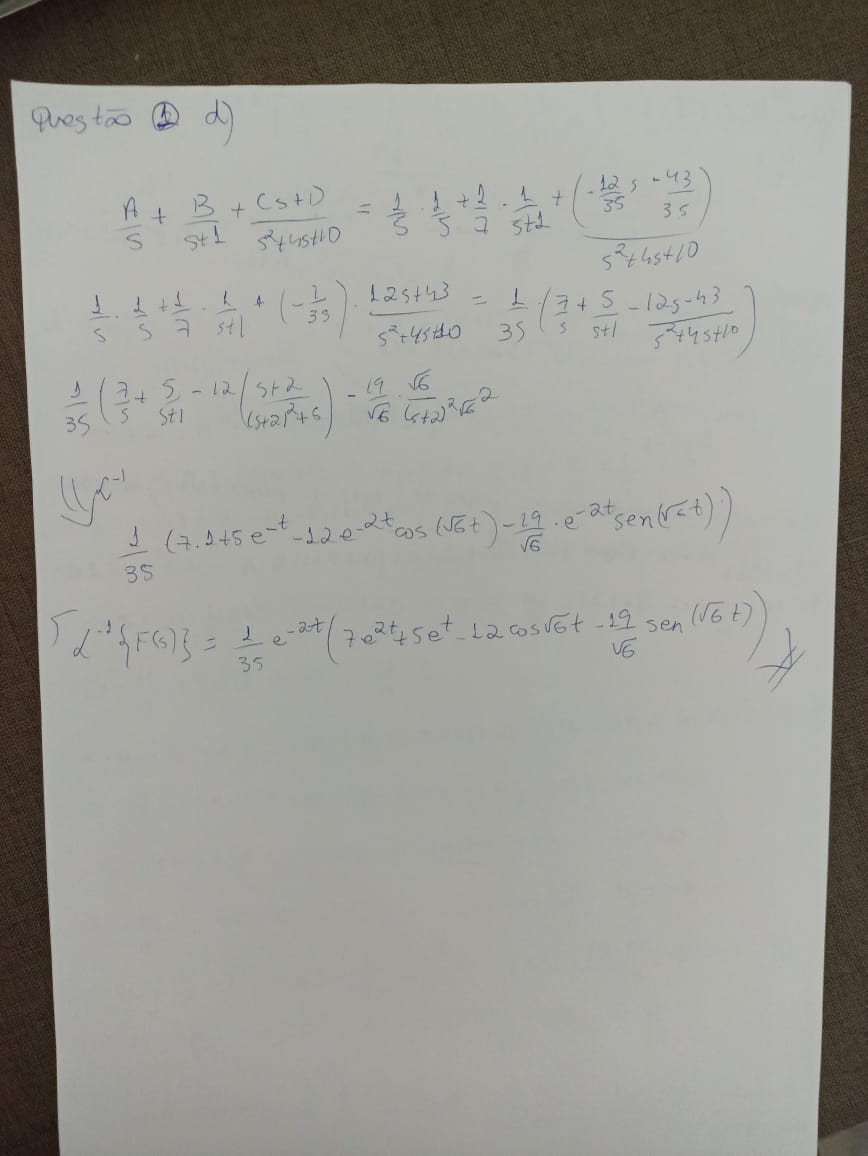 Questão ① d)
A/s + B/s+1 + Cs+D/s²+4s+10 = 1/5 · 1/s + 1/7 · 1/s+1 + (-12/35 s - 43/35)/s²+4s+10
1/5 · 1/s + 1/7 · 1/s+1 + (-1/35) · 12s+43/s²+4s+10 = 1/35 · (7/s + 5/s+1 - 12s-43/s²+4s+10)
1/35 (7/s + 5/s+1 - 12 (s+2/(s+2)²+6) - 19/√6 · √6/(s+2)²√6²
⇓ ℒ⁻¹
1/35 (7.1+5e⁻ᵗ -12e⁻²ᵗcos(√6t) - 19/√6 · e⁻²ᵗsen(√6t))
ℒ⁻¹{F(s)} = 1/35 e⁻²ᵗ(7e²ᵗ+5eᵗ-12cos√6t - 19/√6 sen(√6t))